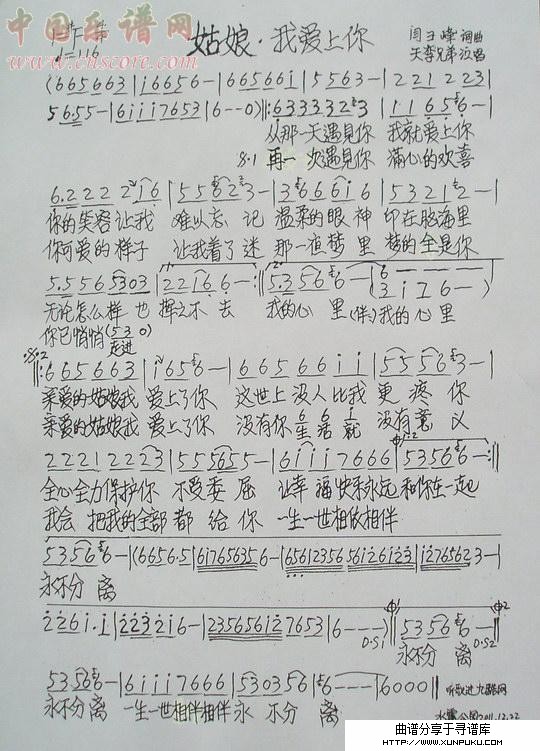 中国乐谱网
www.cnscore.com
姑娘·我爱上你
词曲
天李兄弟 演唱
(665663|i6656-|665661|5563-|221 223|
5655-|6iii7653|6--0)‖:6333323|11656-|
从那一天遇見你 我就爱上你
8.1 再一次遇見你 滿心的欢喜
6.222 2i6|55623-|366616|5321 2-|
你的笑容让我 难以忘 记 温柔的眼神 印在脑海里
你可爱的样子 让我着了迷 那一夜梦里 梦的全是你
5.556 5303|22166-:‖5.3566-
无论怎么样 也 挥之不 去 我的心 里 (伴)我的心 里
你已悄悄(530)
走进
‖:665663|i656-|6656ii|55563-|
亲爱的姑娘我 爱上了你 这世上没人比我 更 疼 你
亲爱的姑娘我 爱上了你 没有你生活就 没有意 义
2221 2223|555655-|6iii7666|53566-:‖
全心全力保护你 不受委 屈 让幸福快乐永远和你在一起
我会 把我的全部都 给 你 一生一世相依相伴
53566-|(6656.5|617656356-|
永不分 离
226i.i|2232i6-|23565612 7653|6---)|53566-
D.S1 D.S2
永不分 离
53566-|6iii7666|5303566|6---|6000‖
永不分 离 一生一世相伴相伴永 不分 离
2011.12.22
曲谱分享于寻谱库
www.xunpuku.com